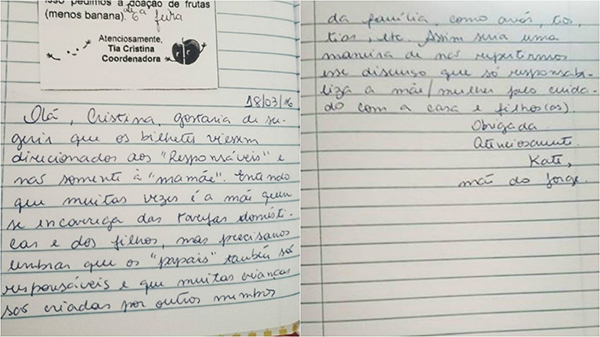 isso pedimos a doação de frutas
(menos banana). 6ª feira
Atenciosamente,
Tia Cristina
Coordenadora
18/03/16
Olá, Cristina, gostaria de su-
gerir que os bilhetes viessem
direcionados aos "Responsáveis" e
não somente à "mamãe". Entendo
que muitas vezes é a mãe quem
se encarrega das tarefas domésti-
cas e dos filhos, mas precisamos
lembrar que os "papais" também são
responsáveis e que muitas crianças
são criadas por outros membros
da família, como avós, tios,
tias, etc. Assim seria uma
maneira de não repetirmos
esse discurso que só responsabi-
liza a mãe/mulher pelo cuida-
do com a casa e filhos(as).
Obrigada.
Atenciosamente.
Kate,
mãe do Jorge.